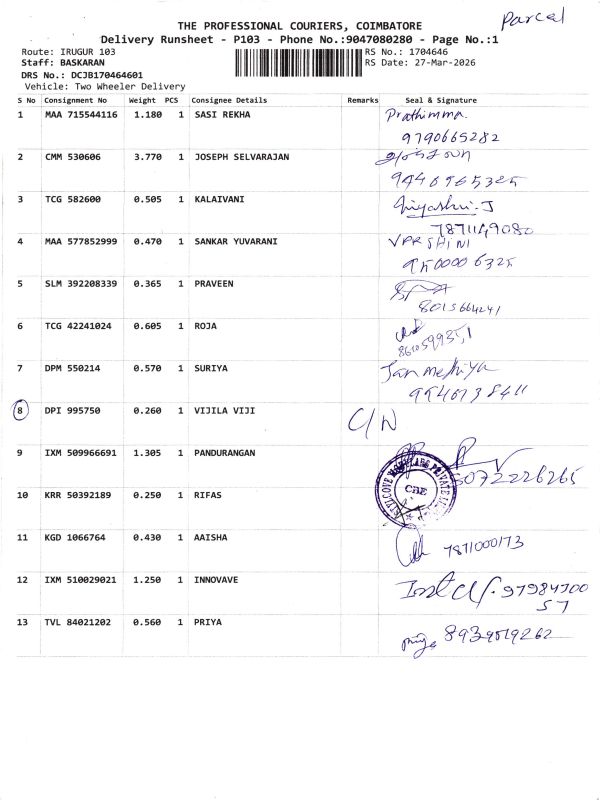 Parcel
THE PROFESSIONAL COURIERS, COIMBATORE
Delivery Runsheet - P103 - Phone No.:9047080280 - Page No.:1
Route: IRUGUR 103
RS No.: 1704646
Staff: BASKARAN
RS Date: 27-Mar-2026
DRS No.: DCJB170464601
Vehicle: Two Wheeler Delivery
S No Consignment No Weight PCS Consignee Details Remarks Seal & Signature
1 MAA 715544116 1.180 1 SASI REKHA Prathimma.
9790665282
2 CMM 530606 3.770 1 JOSEPH SELVARAJAN
3 TCG 582600 0.505 1 KALAIVANI
7871149080
4 MAA 577852999 0.470 1 SANKAR YUVARANI VARSHINI
5 SLM 392208339 0.365 1 PRAVEEN
8015664241
6 TCG 42241024 0.605 1 ROJA
7 DPM 550214 0.570 1 SURIYA
8 DPI 995750 0.260 1 VIJILA VIJI C/N
9 IXM 509966691 1.305 1 PANDURANGAN
CBE
10 KRR 50392189 0.250 1 RIFAS
11 KGD 1066764 0.430 1 AAISHA 7871000173
12 IXM 510029021 1.250 1 INNOVAVE
57
13 TVL 84021202 0.560 1 PRIYA